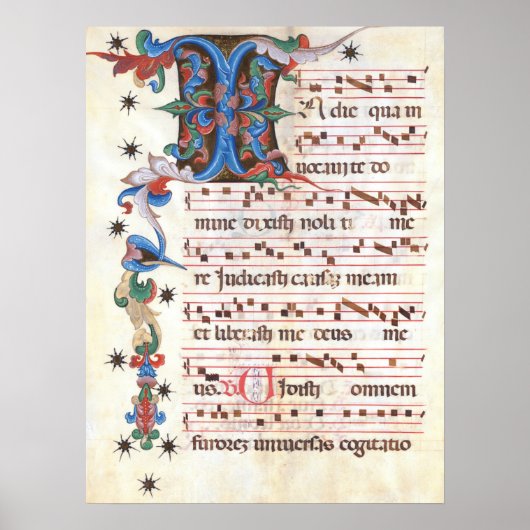 IN die qua in
uocaui te do
mine dixisti noli ti me
re Iudicasti causaz meam
et liberasti me deus me
us. V. Uidisti omnem
furorez uniuersas cogitatio